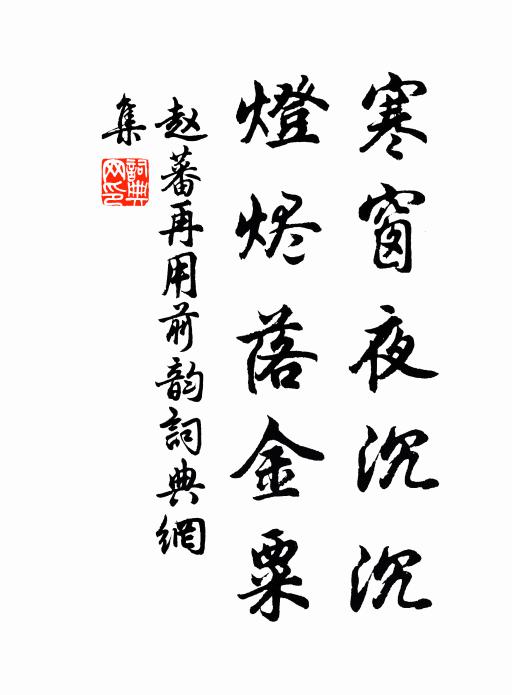 寒窗夜沉沉
燈烬落金粟
赵蕃再用前韵詞典網
集
詞典
网印